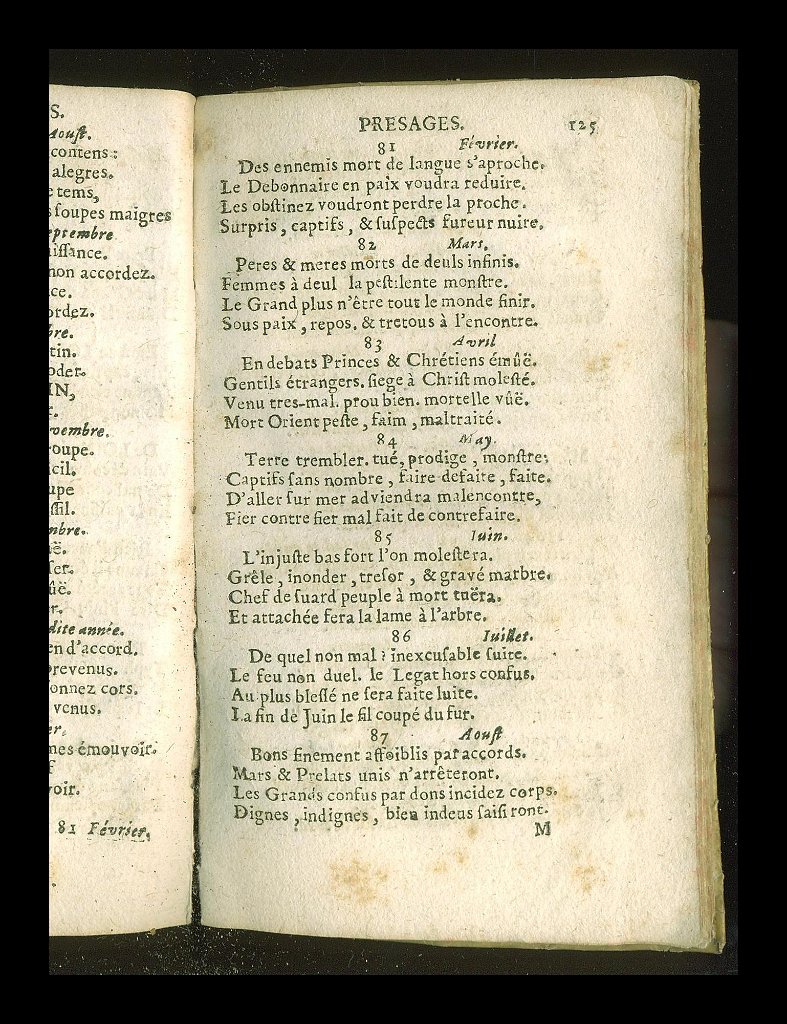 S.
Aouſt.
contens:
alegres.
e tems,
s ſoupes maigres
eptembre
iſſance.
non accordez.
ce.
ordez.
bre.
tin.
oder.
IN,
r.
vembre.
roupe.
cil.
upe
ſſil.
mbre.
ë.
ſer.
ûë.
r.
dite année.
en d'accord.
prevenus.
onnez cors.
venus.
er.
mes émouvoir.
f
voir.
81 Février.
PRESAGES. 125
81 Février.
Des ennemis mort de langue s'aproche.
Le Debonnaire en paix voudra reduire.
Les obſtinez voudront perdre la proche.
Surpris, captifs, & ſuſpects fureur nuire.
82 Mars.
Peres & meres morts de deuls infinis.
Femmes à deul la peſtilente monſtre.
Le Grand plus n'être tout le monde finir.
Sous paix, repos. & tretous à l'encontre.
83 Avril
En debats Princes & Chrétiens émûë.
Gentils étrangers. ſiege à Chriſt moleſté.
Venu tres-mal. prou bien. mortelle vûë.
Mort Orient peſte, faim, maltraité.
84 May.
Terre trembler. tué, prodige, monſtre:
Captifs ſans nombre, faire defaite, faite.
D'aller ſur mer adviendra malencontre,
Fier contre fier mal fait de contrefaire.
85 Iuin.
L'injuſte bas fort l'on moleſtera.
Grêle, inonder, treſor, & gravé marbre.
Chef de ſuard peuple à mort tuëra.
Et attachée ſera la lame à l'arbre.
86 Iuillet.
De quel non mal? inexcuſable ſuite.
Le feu non duel. le Legat hors confus.
Au plus bleſſé ne ſera faite luite.
La fin de Juin le fil coupé du fur.
87 Aouſt
Bons finement affoiblis par accords.
Mars & Prelats unis n'arrêteront.
Les Grands confus par dons incidez corps.
Dignes, indignes, bien indeus ſaiſiront.
M